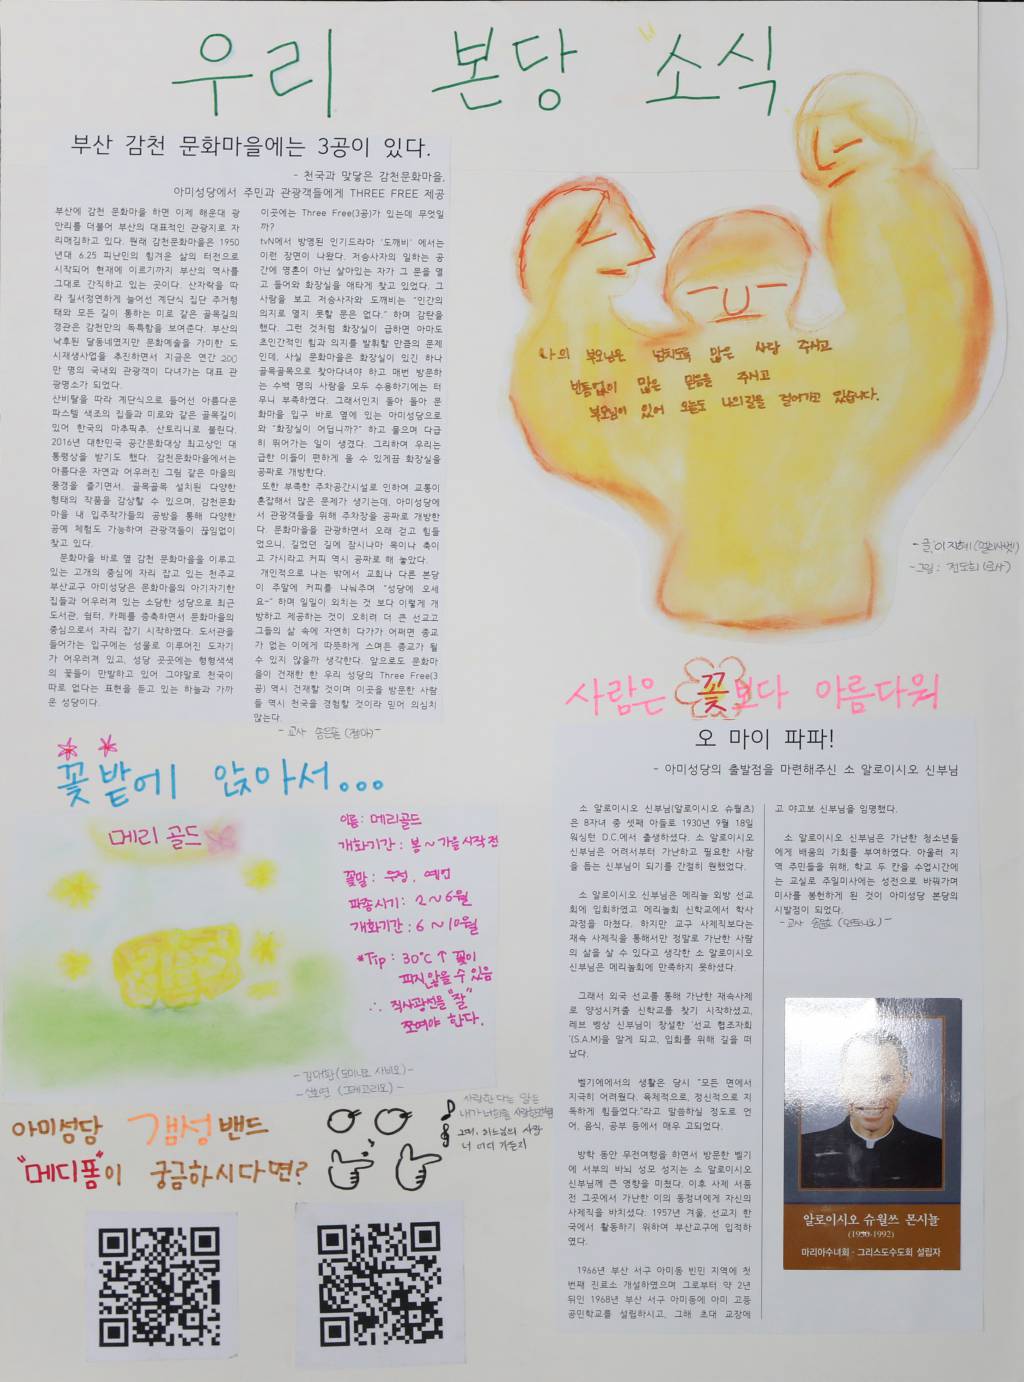 우리 본당 소식
부산 감천 문화마을에는 3공이 있다.
- 천국과 맞닿은 감천문화마을,
아미성당에서 주민과 관광객들에게 THREE FREE 제공
부산에 감천 문화마을 하면 이제 해운대 광
안리를 더불어 부산의 대표적인 관광지로 자
리매김하고 있다. 원래 감천문화마을은 1950
년대 6.25 피난민의 힘겨운 삶의 터전으로
시작되어 현재에 이르기까지 부산의 역사를
그대로 간직하고 있는 곳이다. 산자락을 따
라 질서정연하게 늘어선 계단식 집단 주거형
태와 모든 길이 통하는 미로 같은 골목길의
경관은 감천만의 독특함을 보여준다. 부산의
낙후된 달동네였지만 문화예술을 가미한 도
시재생사업을 추진하면서 지금은 연간 200
만 명의 국내외 관광객이 다녀가는 대표 관
광명소가 되었다.
산비탈을 따라 계단식으로 들어선 아름다운
파스텔 색조의 집들과 미로와 같은 골목길이
있어 한국의 마추픽추, 산토리니로 불린다.
2016년 대한민국 공간문화대상 최고상인 대
통령상을 받기도 했다. 감천문화마을에서는
아름다운 자연과 어우러진 그림 같은 마을의
풍경을 즐기면서, 골목골목 설치된 다양한
형태의 작품을 감상할 수 있으며, 감천문화
마을 내 입주작가들의 공방을 통해 다양한
공예 체험도 가능하여 관광객들이 끊임없이
찾고 있다.
문화마을 바로 옆 감천 문화마을을 이루고
있는 고개의 중심에 자리 잡고 있는 천주교
부산교구 아미성당은 문화마을의 아기자기한
집들과 어우러져 있는 소담한 성당으로 최근
도서관, 쉼터, 카페를 증축하면서 문화마을의
중심으로서 자리 잡기 시작하였다. 도서관을
들어가는 입구에는 성물로 이루어진 도자기
가 어우러져 있고, 성당 곳곳에는 형형색색
의 꽃들이 만발하고 있어 그야말로 천국이
따로 없다는 표현을 듣고 있는 하늘과 가까
운 성당이다.
이곳에는 Three Free(3공)가 있는데 무엇일
까?
tvN에서 방영된 인기드라마 '도깨비' 에서는
이런 장면이 나왔다. 저승사자의 일하는 공
간에 영혼이 아닌 살아있는 자가 그 문을 열
고 들어와 화장실을 애타게 찾고 있었다. 그
사람을 보고 저승사자와 도깨비는 "인간의
의지로 열지 못할 문은 없다." 하며 감탄을
했다. 그런 것처럼 화장실이 급하면 아마도
초인간적인 힘과 의지를 발휘할 만큼의 문제
인데, 사실 문화마을은 화장실이 있긴 하나
골목골목으로 찾아다녀야 하고 매번 방문하
는 수백 명의 사람을 모두 수용하기에는 터
무니 부족하였다. 그래서인지 돌아 돌아 문
화마을 입구 바로 옆에 있는 아미성당으로
와 "화장실이 어딥니까?" 하고 물으며 다급
히 뛰어가는 일이 생겼다. 그리하여 우리는
급한 이들이 편하게 올 수 있게끔 화장실을
공짜로 개방한다.
또한 부족한 주차공간시설로 인하여 교통이
혼잡해서 많은 문제가 생기는데, 아미성당에
서 관광객들을 위해 주차장을 공짜로 개방한
다. 문화마을을 관광하면서 오래 걷고 힘들
었으니, 길었던 길에 잠시나마 목이나 축이
고 가시라고 커피 역시 공짜로 해 놓았다.
개인적으로 나는 밖에서 교회나 다른 본당
이 주말에 커피를 나눠주며 "성당에 오세
요~" 하며 일일이 외치는 것 보다 이렇게 개
방하고 제공하는 것이 오히려 더 큰 선교고
그들의 삶 속에 자연히 다가가 어쩌면 종교
가 없는 이에게 따뜻하게 스며든 종교가 될
수 있지 않을까 생각한다. 앞으로도 문화마
을이 건재한 한 우리 성당의 Three Free(3
공) 역시 건재할 것이며 이곳을 방문한 사람
들 역시 천국을 경험할 것이라 믿어 의심치
않는다.
- 교사 송은율 (젬마) -
나의 부모님은 넘치도록 많은 사랑 주시고
빈틈없이 많은 믿음을 주시고
부모님이 있어 오늘도 나의길을 걸어가고 있습니다.
- 글: 이지혜 (엘리사벳)
- 그림 : 전도희
사람은 꽃보다 아름다워
오 마이 파파!
- 아미성당의 출발점을 마련해주신 소 알로이시오 신부님
소 알로이시오 신부님(알로이시오 슈월츠)
은 8자녀 중 셋째 아들로 1930년 9월 18일
워싱턴 D.C에서 출생하셨다. 소 알로이시오
신부님은 어려서부터 가난하고 필요한 사람
을 돕는 신부님이 되기를 간절히 원했었다.
소 알로이시오 신부님은 메리놀 외방 선교
회에 입회하였고 메리놀회 신학교에서 학사
과정을 마쳤다. 하지만 교구 사제직보다는
재속 사제직을 통해서만 정말로 가난한 사람
의 삶을 살 수 있다고 생각한 소 알로이시오
신부님은 메리놀회에 만족하지 못하셨다.
그래서 외국 선교를 통해 가난한 재속사제
로 양성시켜줄 신학교를 찾기 시작하셨고,
레브 뱅상 신부님이 창설한 '선교 협조자회
'(S.A.M)을 알게 되고, 입회를 위해 길을 떠
났다.
벨기에에서의 생활은 당시 "모든 면에서
지극히 어려웠다. 육체적으로, 정신적으로 지
독하게 힘들었다."라고 말씀하실 정도로 언
어, 음식, 공부 등에서 매우 고되었다.
방학 동안 무전여행을 하면서 방문한 벨기
에 서부의 바뇌 성모 성지는 소 알로이시오
신부님께 큰 영향을 미쳤다. 이후 사제 서품
전 그곳에서 가난한 이의 동정녀에게 자신의
사제직을 바치셨다. 1957년 겨울, 선교지 한
국에서 활동하기 위하여 부산교구에 입적하
였다.
1966년 부산 서구 아미동 빈민 지역에 첫
번째 진료소 개설하였으며 그로부터 약 2년
뒤인 1968년 부산 서구 아미동에 아미 고등
공민학교를 설립하시고, 그해 초대 교장에
고 야고보 신부님을 임명했다.
소 알로이시오 신부님은 가난한 청소년들
에게 배움의 기회를 부여하였다. 아울러 지
역 주민들을 위해, 학교 두 칸을 수업시간에
는 교실로 주일미사에는 성전으로 바꿔가며
미사를 봉헌하게 된 것이 아미성당 본당의
시발점이 되었다.
- 교사 송윤호 (안토니오) -
알로이시오 슈월쓰 몬시뇰
(1930-1992)
마리아수녀회 · 그리스도수도회 설립자
꽃밭에 앉아서...
메리 골드
이름 : 메리골드
개화기간 : 봄~가을 시작 전
꽃말 : 우정, 예언
파종시기 : 2~6월
개화기간 : 6~10월
*Tip : 30°C↑ 꽃이
피지않을 수 있음
∴ 직사광선을 "잘"
쪼여야 한다.
- 김대환 (도미니코 사비오) -
- 신호연 (그레고리오) -
아미성당 갬성 밴드
"메디폼"이 궁금하시다면?
사랑한다는 말은
내가 너희를 사랑한 것처럼
그때, 하느님의 사랑
너 어디 가든지